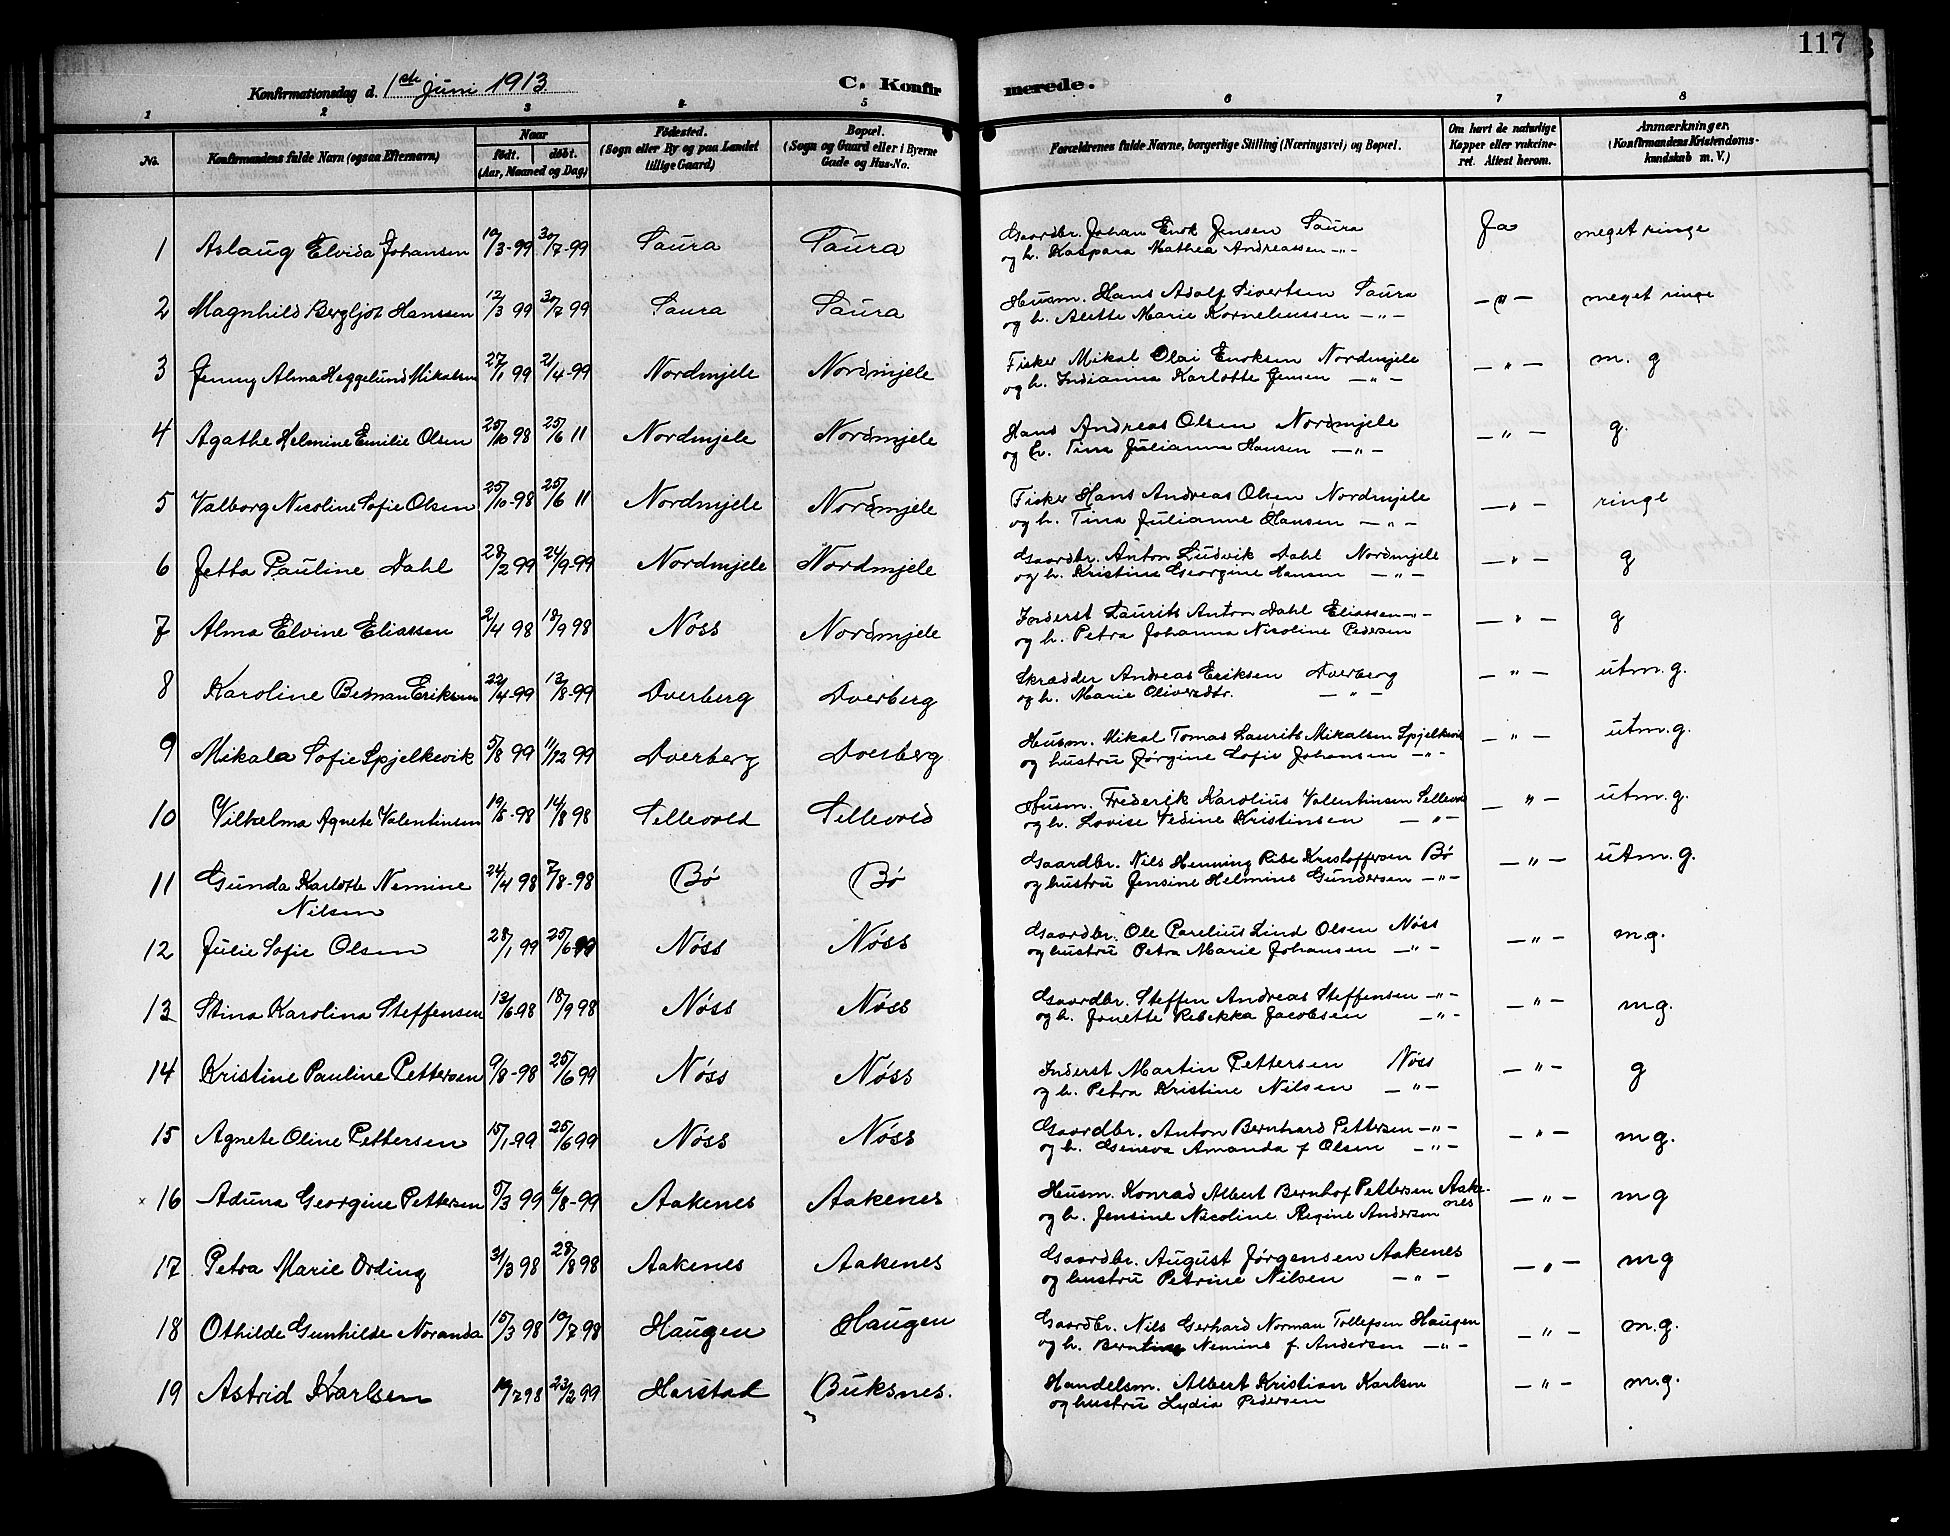 117
Konfirmationsdag d. 1ste Juni 1913
C. Konfirmerede.
1 2 3 4 5 6 7 8
No.
Konfirmandens fulde Navn (ogsaa Efternavn)
Naar
født. døbt.
(Aar, Maaned og Dag)
Fødested.
(Sogn eller By og paa Landet
tillige Gaard)
Bopæl.
(Sogn og Gaard eller i Byerne
Gade og Hus-No.
Forældrenes fulde Navne, borgerlige Stilling (Næringsvei) og Bopæl.
Om havt de naturlige
Kopper eller vaccine-
ret. Attest herom.
Anmærkninger.
(Konfirmandens Kristendoms-
kundskab m. V.)
1 Aslaug Elvida Johansen 10/3-99 30/7-99 Saura Saura Gaardbr. Johan Enok Jensen Saura Ja meget ringe
og h. Kaspara Mathea Andreassen -"-
2 Magnhild Bergljot Hanssen 12/3 99 30/7 99 Saura Saura Husm. Hans Adolf Sivertsen Saura -"- meget ringe
og h. Alette Marie Korneliussen -"-
3 Jenny Alma Heggelund Mikalsen 27/1 99 2/4-99 Nordmjele Nordmjele Fisker Mikal Olai Enoksen Nordmjele -"- m. g
og h. Indianna Karlotte Jensen -"-
4 Agathe Helmine Emilie Olsen 25/10 98 25/6 11 Nordmjele Nordmjele Hans Andreas Olsen Nordmjele -"- g.
og h. Tina Julianna Hansen -"-
5 Valborg Nicoline Sofie Olsen 25/10-98 25/6 11 Nordmjele Nordmjele Fisker Hans Andreas Olsen Nordmjele -"- ringe
og h. Tina Julianne Hansen -"-
6 Jetta Pauline Dahl 28/2 99 24/9-99 Nordmjele Nordmjele Gaardbr. Anton Ludvik Dahl Nordmjele -"- g
og h. Kristine Georgine Hansen -"-
7 Alma Elvine Eliassen 2/4 98 18/9 98 Nøss Nordmjele Inderst Laurits Anton Dahl Eliassen -"- -"- g
og h. Petra Johanna Nicoline Pedersen
8 Karoline Beman Eriksen 22/4-99 13/8-99 Dverberg Dverberg Skrædder Andreas Eriksen Dverberg -"- utm. g.
og h. Marie Oliversdtr. -"-
9 Mikala Sofie Spjelkevik 5/8 99 11/12 99 Dverberg Dverberg Husm. Mikal Tomas Laurits Mikalsen Spjelkevik -"- utm. g.
og hustru Jørgine Sofie Johansen -"-
10 Vilhelma Agnete Valentinsen 19/5-98 14/8 98 Sellevold Sellevold Husm. Frederik Karolius Valentinsen Sellevold -"- utm. g.
og h. Lovise Vedine Kristinsen -"-
11 Gunda Karlotte Nemine 24/4 98 7/8-98 Bø Bø Gaardbr. Nils Henning Ribe Kristoffersen Bø -"- utm. g.
Nilsen og hustru Jensine Helmine Gundersen -"-
12 Julie Sofie Olsen 28/1 99 25/6 99 Nøss Nøss Gaardbr. Ole Parelius Lind Olsen Nøss -"- m.g.
og hustru Petra Marie Johansen -"-
13 Stina Karolina Steffensen 13/6-98 18/9 98 Nøss Nøss Gaardbr. Steffen Andreas Steffensen -"- -"- mg.
og h. Jonette Rebekka Jacobsen -"-
14 Kristine Pauline Pettersen 9/8-98 25/6 99 Nøss Nøss Inderst Martin Pettersen Nøss -"- g
og h. Petra Kristine Nilsen -"-
15 Agnete Oline Pettersen 15/1-99 25/6 99 Nøss Nøss Gaardbr. Anton Bernhard Pettersen -"- -"- mg.
og h. Geneva Amanda f Olsen -"-
x 16 Aduna Georgine Pettersen 5/3 99 6/8-99 Aakenes Aakenes Husm. Konrad Albert Bernhof Pettersen Aake- -"- mg
og h. Jensine Nicoline Regine Andersen nes
17 Petra Marie Ording 31/3 98 28/8 98 Aakenes Aakenes Gaardbr. August Jørgensen Aakenes -"- mg
og hustru Petrine Nilsen -"-
18 Othilde Gunhilde Noranda 15/3 98 10/7-98 Haugen Haugen Gaardbr. Nils Gerhard Norman Tollefsen Haugen -"- m.g.
og h. Berntine Nemine f. Andersen -"-
19 Astrid Karlsen 19/7 98 23/2 99 Harstad Buksnes. Handelsm. Albert Kristian Karlsen -"- m.g.
og hustru Lydia Pedersen